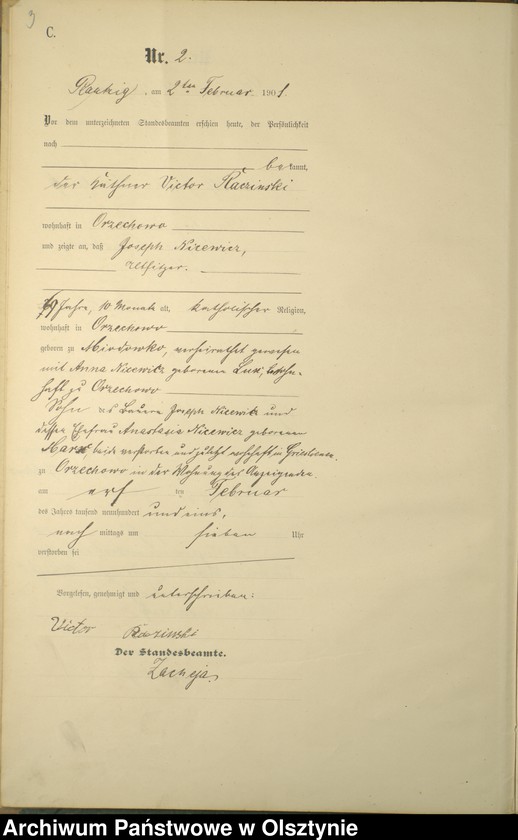 C.
Nr. 2.
am 2ten Februar 1901
Vor dem unterzeichneten Standesbeamten erschien heute, der Persönlichkeit
nach
bekannt,
der Käthner Victor Raczinski
wohnhaft in Orzechowo
und zeigte an, daß Joseph Nicewicz,
Altsitzer.
79 Jahre, 10 Monate alt, katholischer Religion,
wohnhaft in Orzechowo
geboren zu Miodowko, verheirathet gewesen
mit Anna Nicewicz geborenen Luk, wohn-
haft zu Orzechowo
Sohn des Bauern Joseph Nicewicz und
dessen Ehefrau Anastasia Nicewicz geborenen
beide verstorben und zuletzt wohnhaft in
zu Orzechowo in der Wohnung des Anzeigenden
am ten Februar
des Jahres tausend neunhundert und eins,
nach mittags um sieben Uhr
verstorben sei
Vorgelesen, genehmigt und unterschrieben:
Victor Raczinski
Der Standesbeamte.
Zacheja.
Archiwum Państwowe w Olsztynie